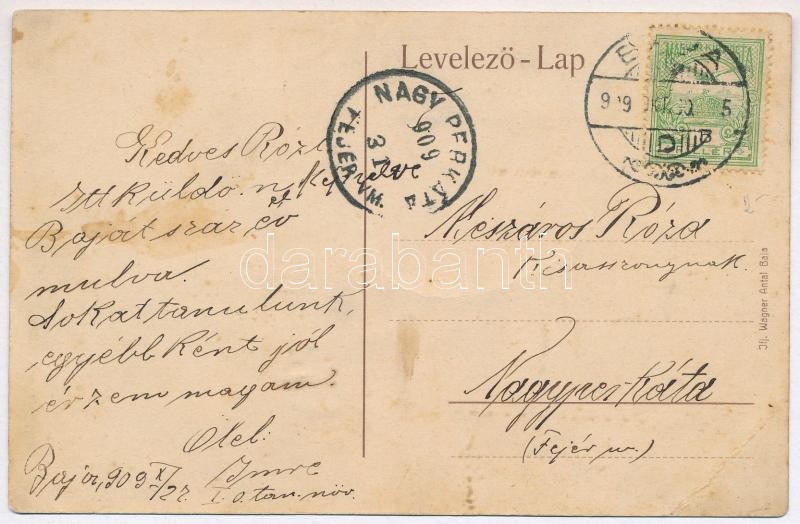 Levelező - Lap
NAGY PERKÁTA
909
31
FEJÉR VM.
BAJA
Kedves Róza
Itt küldöm képzelve
Baját száz év
mulva.
Sokat tanulunk,
egyébbként jól
érzem magam.
Ölel:
Imre
Baja, 909 X/27. I. o. tan. növ.
Mészáros Róza
Kisasszonynak.
Nagyperkáta
(Fejér m.)
Ifj. Wagner Antal Baja
darabanth